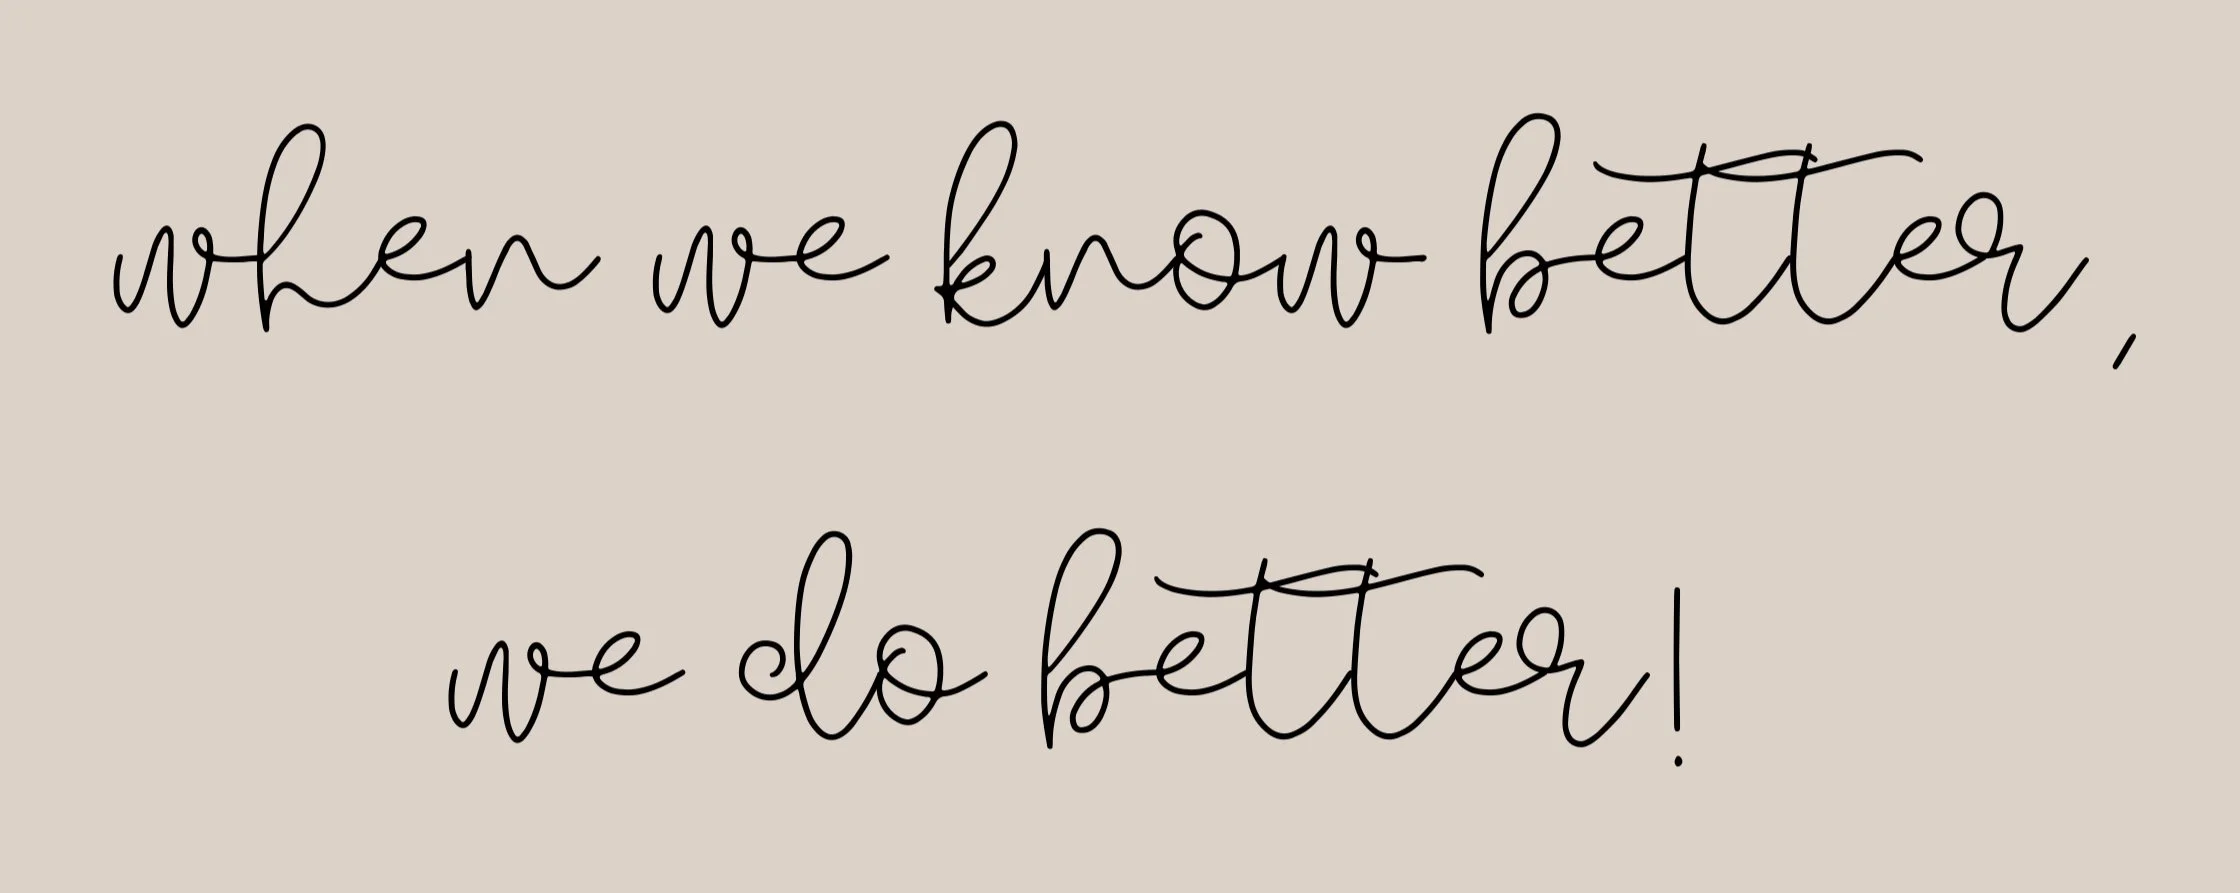 when we know better,
we do better!